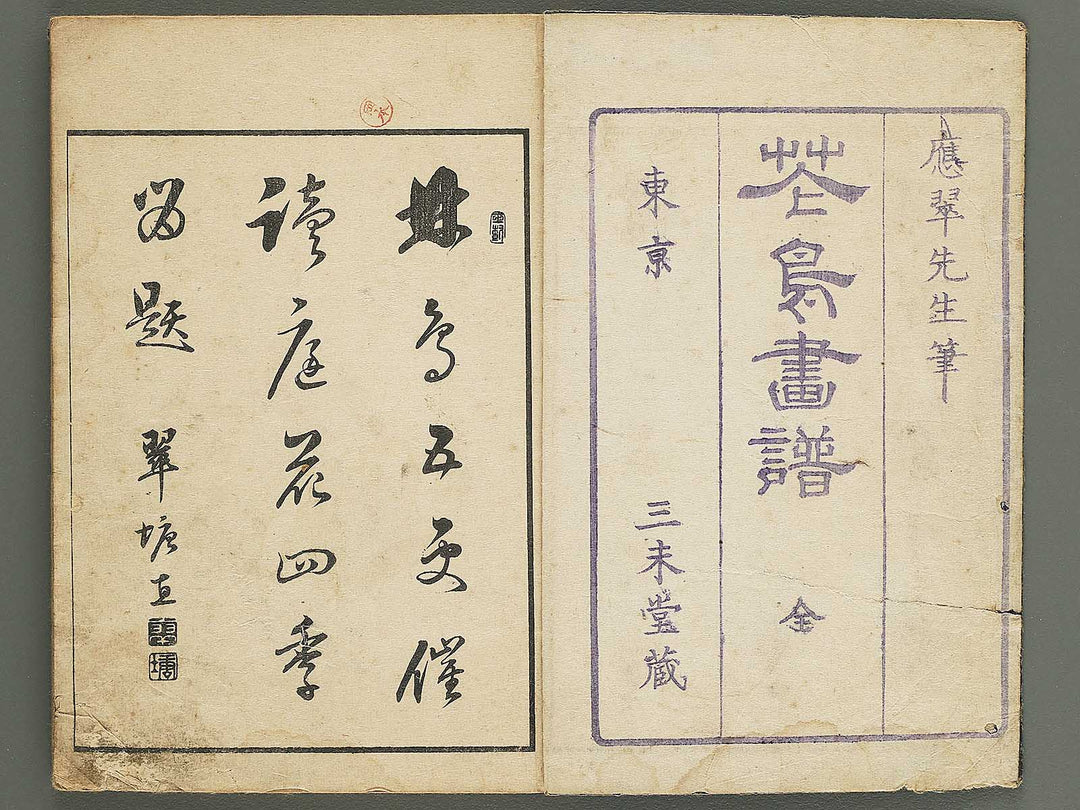 應翠先生筆
花鳥畫譜 全
東京 三未堂藏
林鳥五更催
讀庭花四季
留題 翠塘